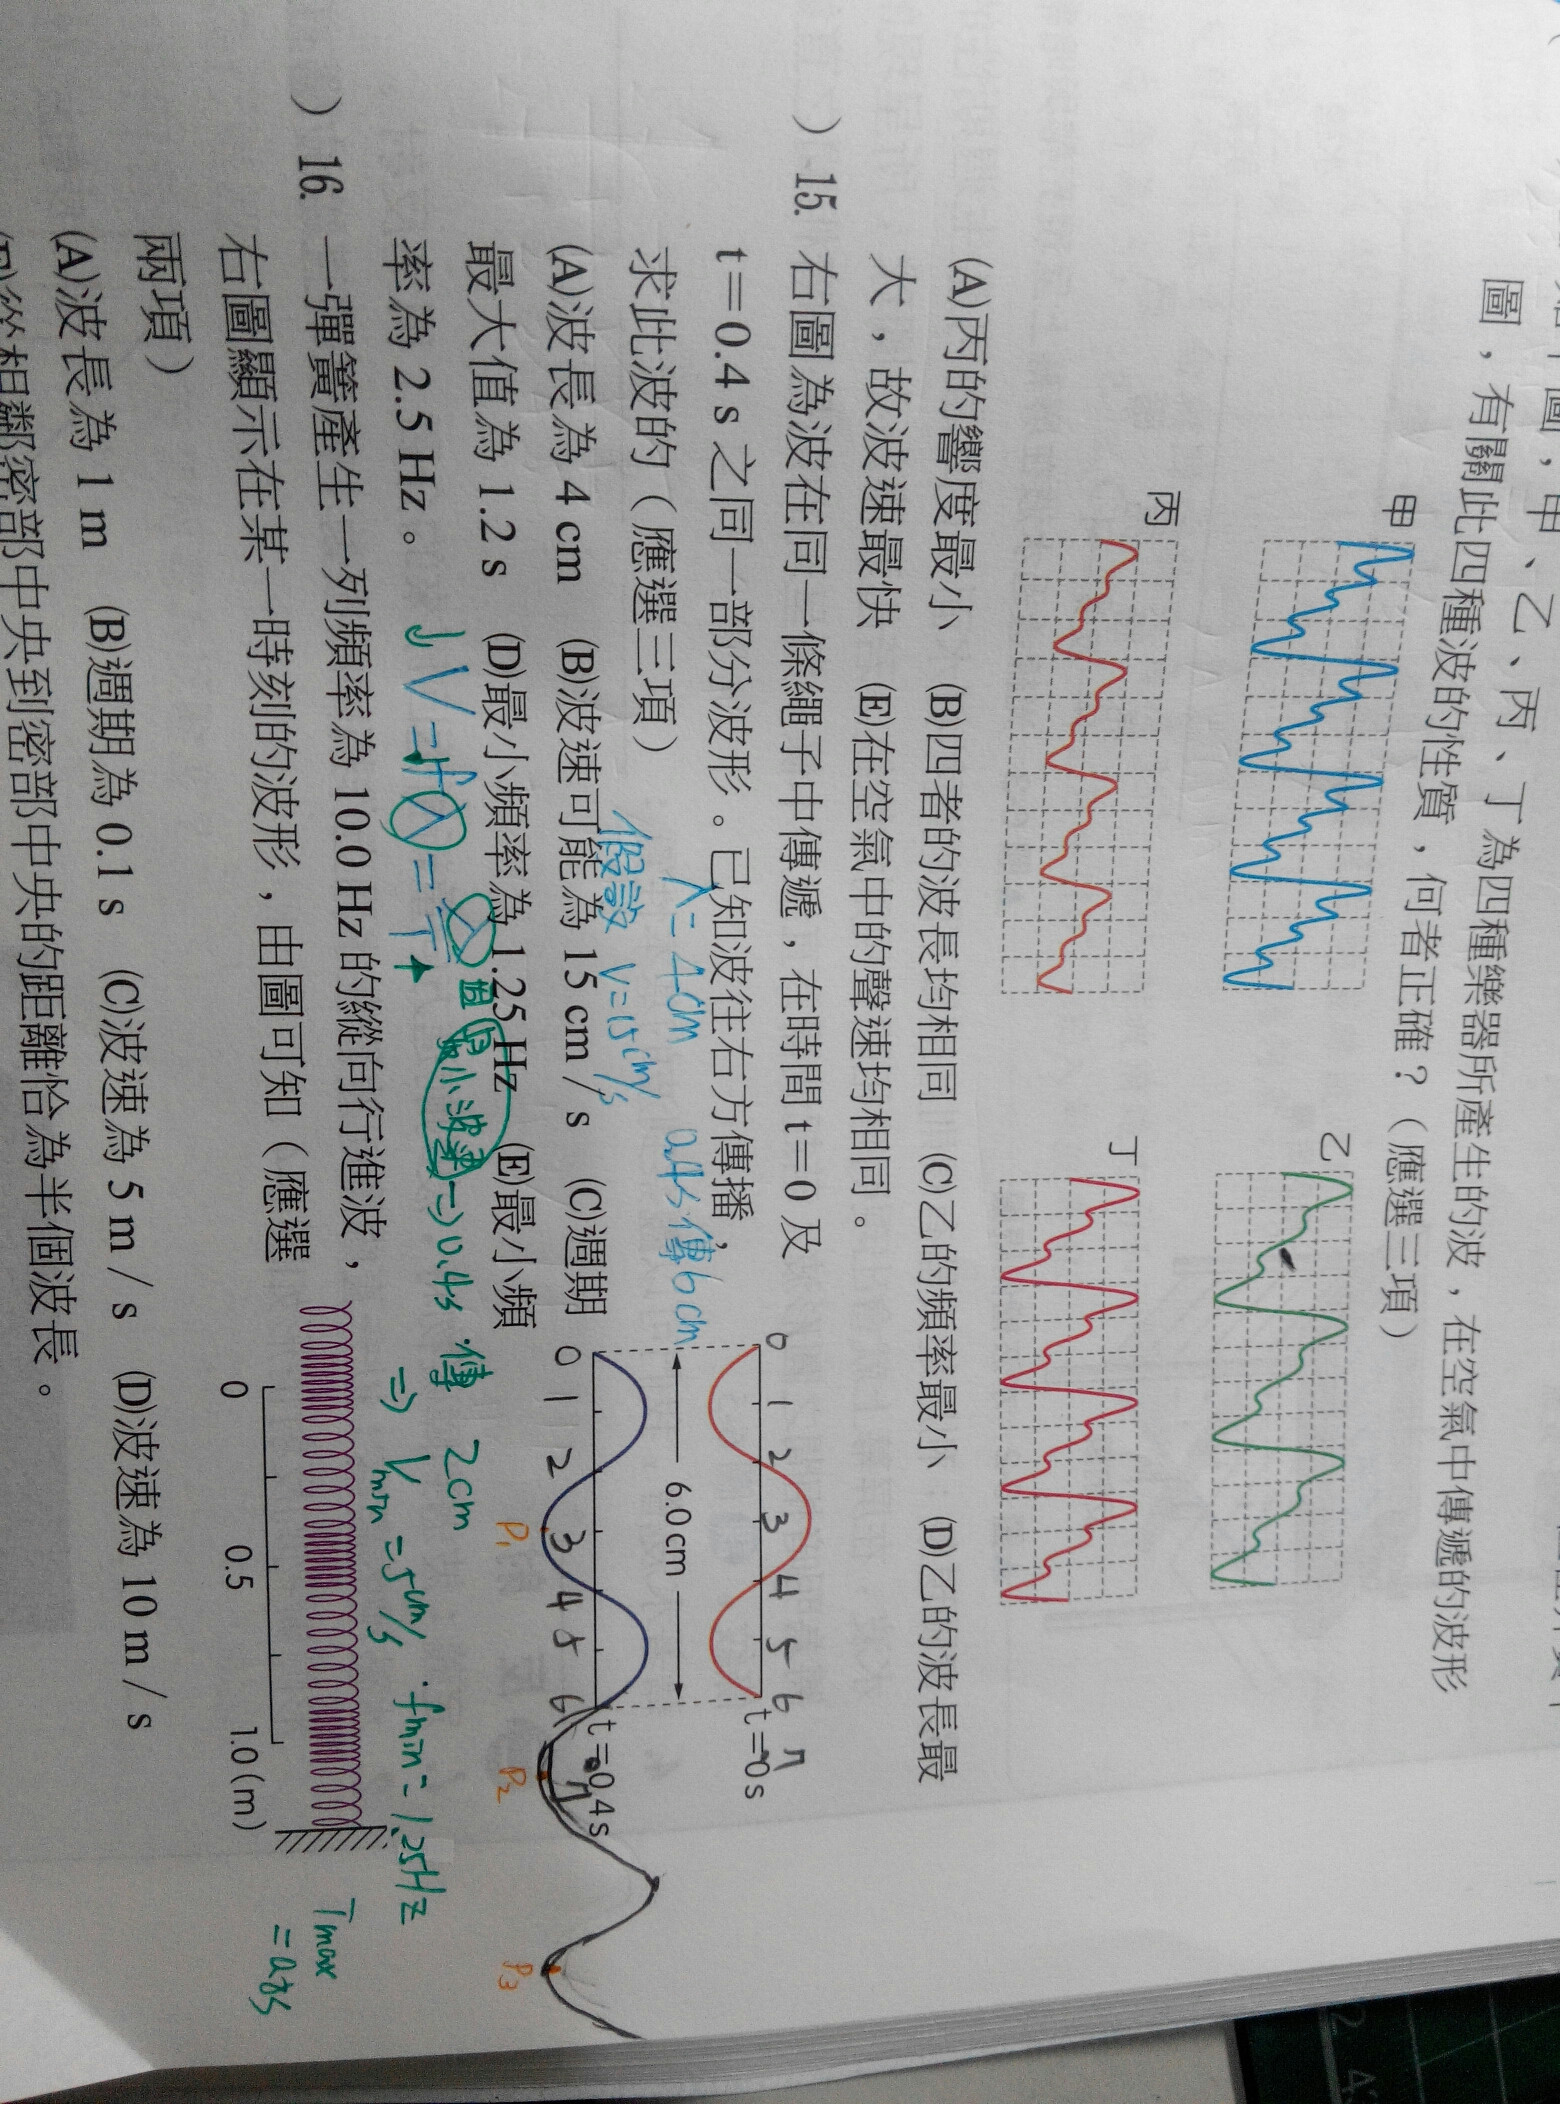 圖，甲、乙、丙、丁為四種樂器所產生的波，在空氣中傳遞的波形
圖，有關此四種波的性質，何者正確？（應選三項）
甲
乙
丙
丁
(A)丙的響度最小 (B)四者的波長均相同 (C)乙的頻率最小 (D)乙的波長最
大，故波速最快 (E)在空氣中的聲速均相同。
) 15. 右圖為波在同一條繩子中傳遞，在時間 t＝0 及
t＝0.4 s 之同一部分波形。已知波往右方傳播，
求此波的（應選三項）
(A)波長為 4 cm (B)波速可能為 15 cm / s (C)週期
最大值為 1.2 s (D)最小頻率為 1.25 Hz (E)最小頻
率為 2.5 Hz。
λ = 4cm 0.4s傳6cm
假設 V=15cm/s
0 1 2 3 4 5 6 7
t＝0 s
6.0 cm
0 1 2 3 4 5 6 7
t＝0.4 s
P1 P2 P3
↓V = ↓fλ = λ/T↑
固 最小波速 ⇒ 0.4s 傳 2cm
⇒ Vmin = 5cm/s . fmin = 1.25Hz
Tmax
= 0.8s
) 16. 一彈簧產生一列頻率為 10.0 Hz 的縱向行進波，
右圖顯示在某一時刻的波形，由圖可知（應選
兩項）
0 0.5 1.0 (m)
(A)波長為 1 m (B)週期為 0.1 s (C)波速為 5 m / s (D)波速為 10 m / s
(E)從相鄰密部中央到密部中央的距離恰為半個波長。
2 4